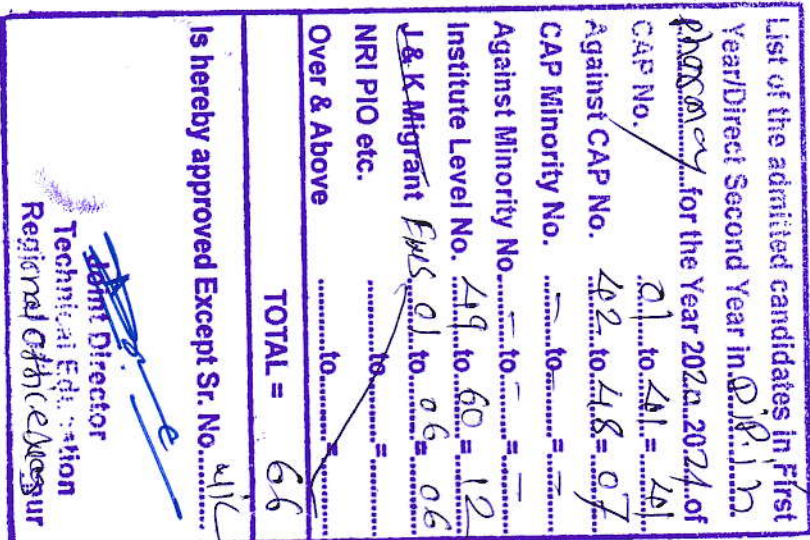 List of the admitted candidates in First
Year/Direct Second Year in D.P. in
pharmacy for the Year 2020 2021 of
CAP No. 01 to 41 = 41
Against CAP No. 42 to 48 = 07
CAP Minority No. - to - = -
Against Minority No. - to - = -
Institute Level No. 49 to 60 = 12
J & K Migrant EWS 01 to 06 = 06
NRI PIO etc. to =
Over & Above to =
TOTAL = 66
Is hereby approved Except Sr. No. NIL
Joint Director
Technical Education
Regional Office